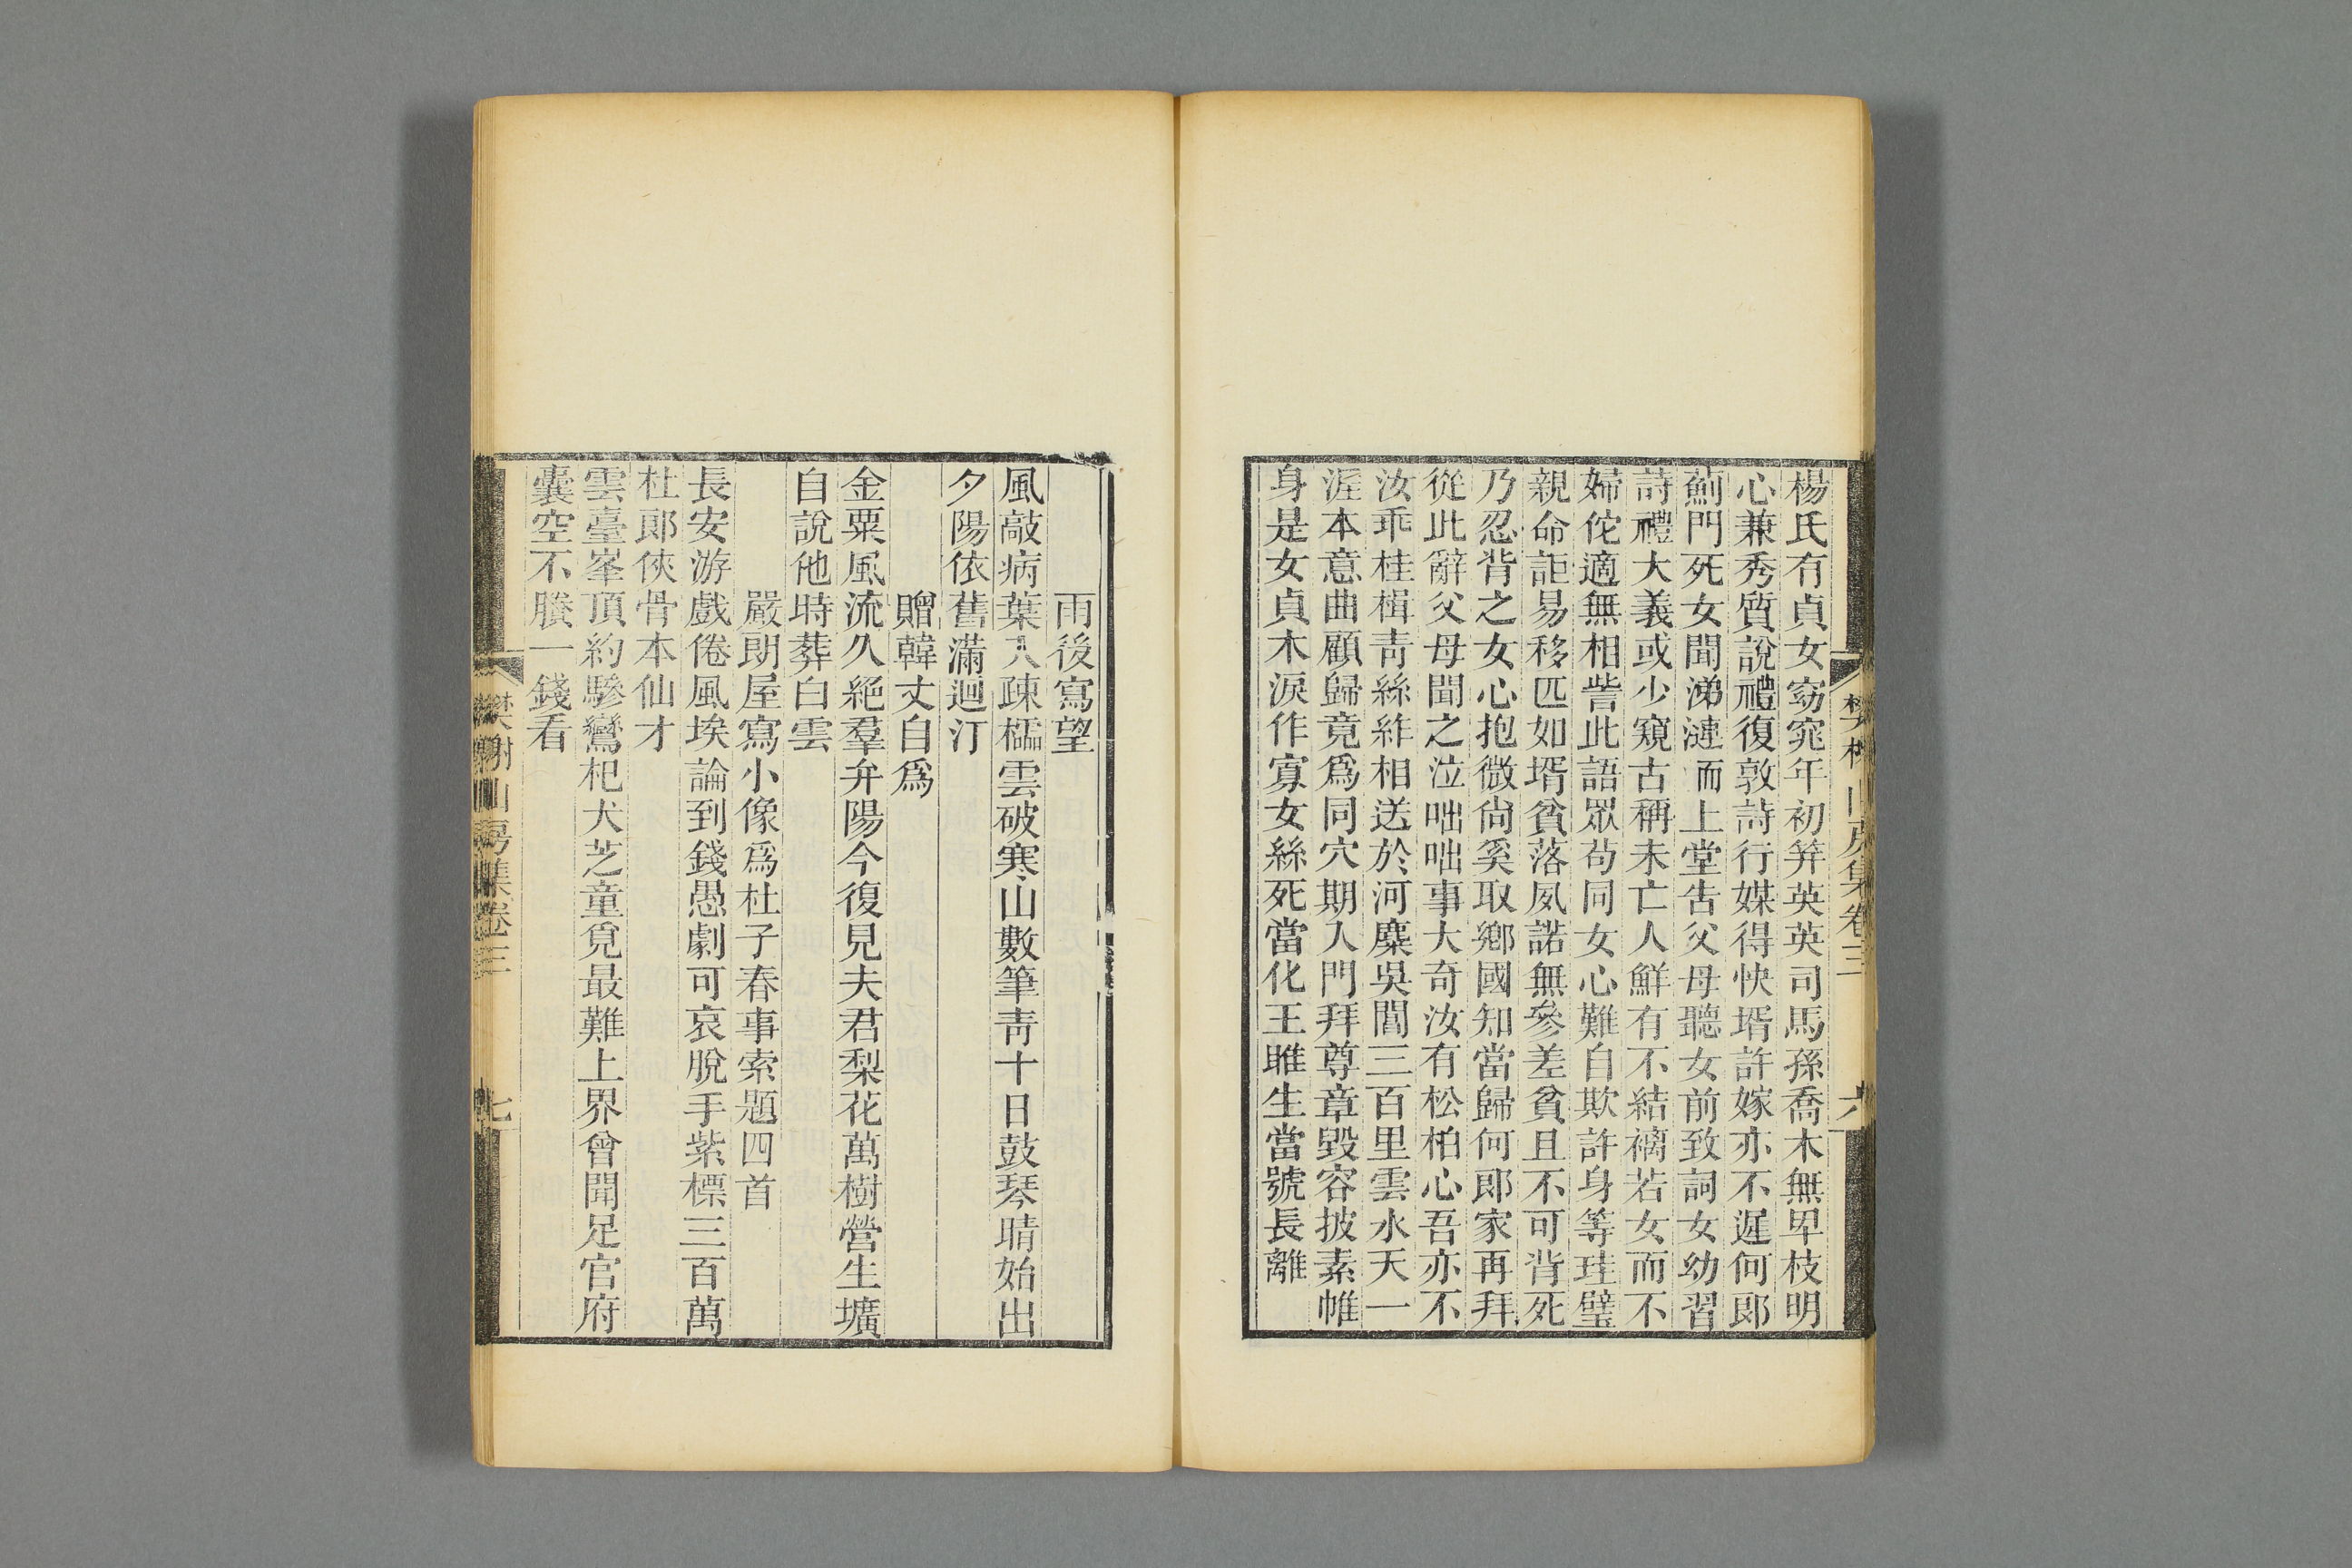 楊氏有貞女窈窕年初笄英英司馬孫喬木無卑枝明
心兼秀質說禮復敦詩行媒得快壻許嫁亦不遲何郎
薊門死女聞涕漣洏上堂告父母聽女前致詞女幼習
詩禮大義或少窺古稱未亡人鮮有不結褵若女而不
婦佗適無相訾此語眾茍同女心難自欺許身等珪璧
親命詎易移匹如壻貧落夙諾無參差貧且不可背死
乃忍背之女心抱微尙奚取鄉國知當歸何郎家再拜
從此辭父母聞之泣咄咄事大奇汝有松柏心吾亦不
汝乖桂楫靑絲䋏相送於河麋吳閶三百里雲水天一
涯本意曲顧歸竟爲同穴期入門拜尊章毀容披素帷
身是女貞木淚作寡女絲死當化王雎生當號長離
樊榭山房集卷三
六
雨後寫望
風敲病葉入疎櫺雲破寒山數筆靑十日鼓琴晴始出
夕陽依舊滿迴汀
贈韓丈自爲
金粟風流久絕羣弁陽今復見夫君梨花萬樹營生壙
自說他時葬白雲
嚴朗屋寫小像爲杜子春事索題四首
長安游戲倦風埃論到錢愚劇可哀脫手紫標三百萬
杜郎俠骨本仙才
雲臺峯頂約驂鸞杞犬芝童覓最難上界曾聞足官府
囊空不賸一錢看
樊榭山房集卷三
七